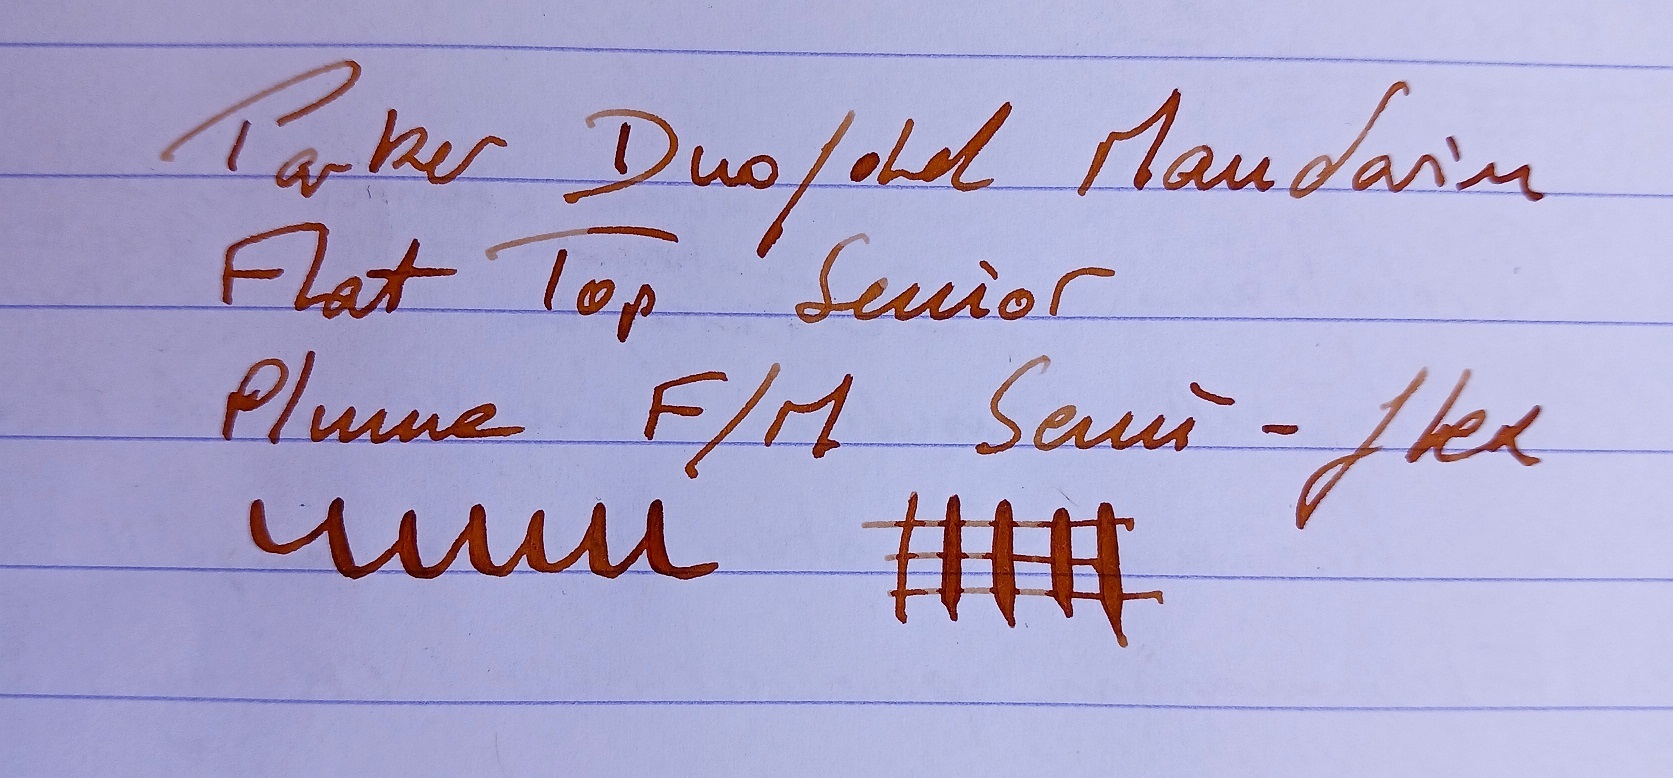 Parker Duofold Mandarin
Flat Top Senior
Plume F/M Semi-flex